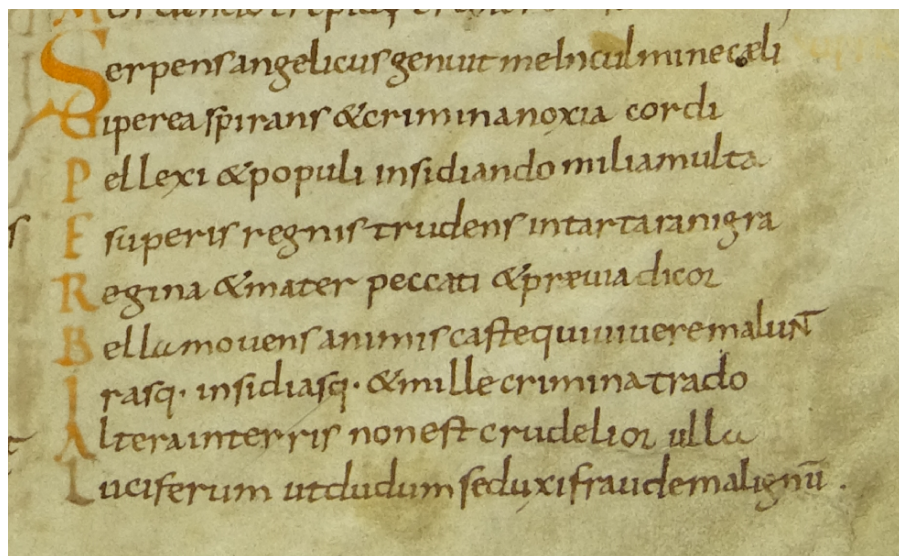 Serpens angelicus genuit me In culmine cæli
Uiperea spirans & criminanoxia cordi
Pellexi & populi insidiando milia multa
E superis regnis trudens in tartara nigra
Regina & mater peccati & prævia dicor
Bella movens animis caste qui vivere malunt
Irasq· insidiasq· & mille crimina trado
Altera in terris non est crudelior ulla
Luciferum ut dudum seduxi fraude malignū .